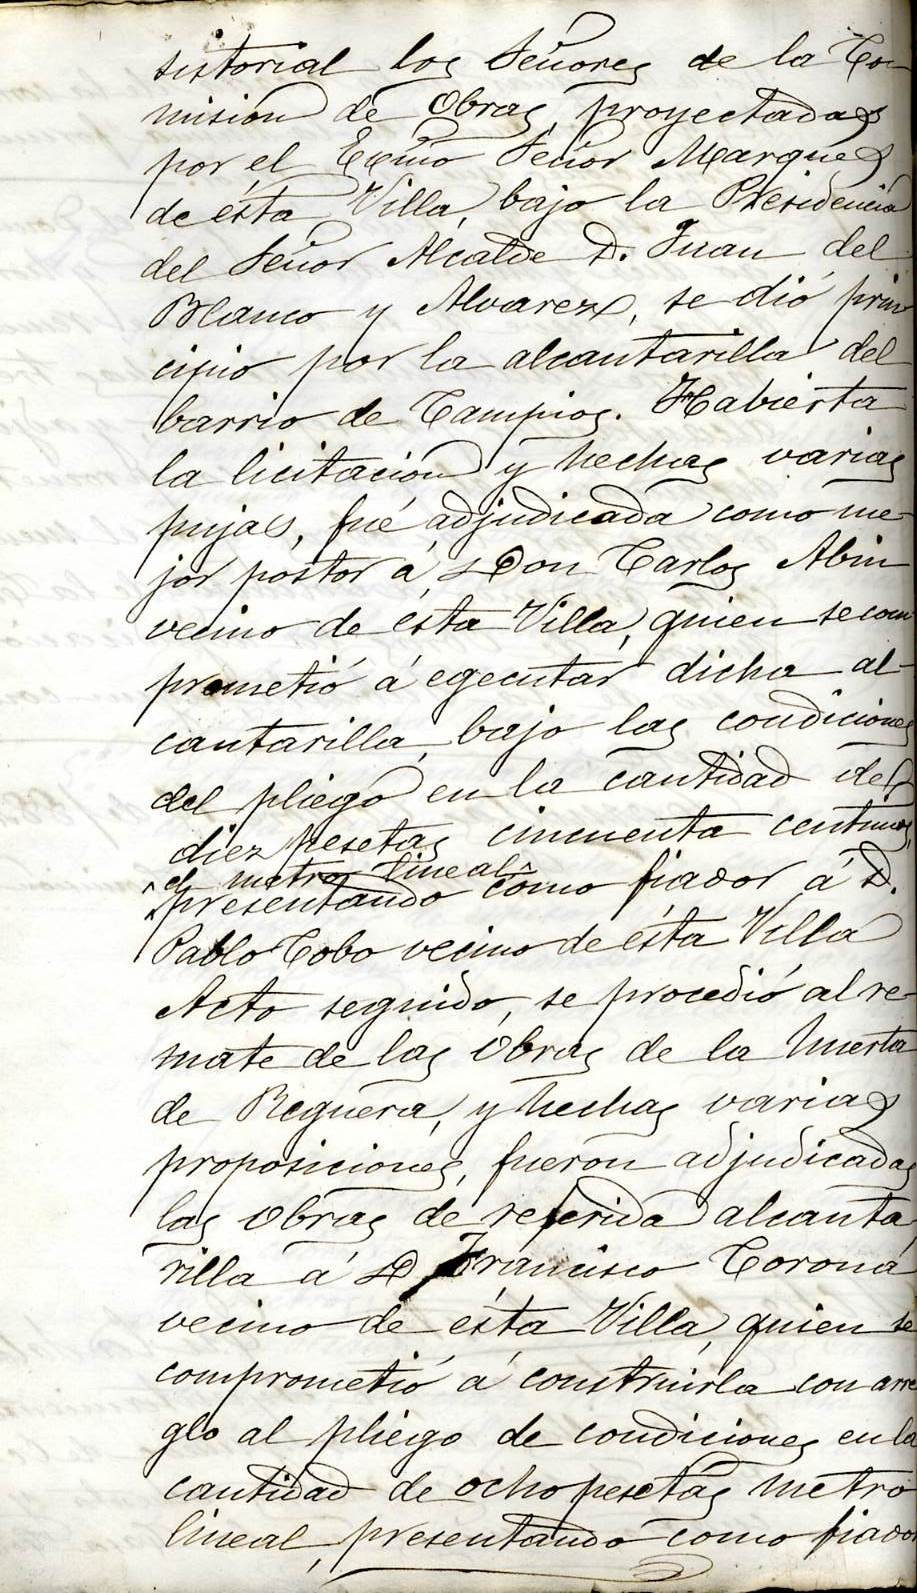 sistorial los Señores de la Co-
mision de Obras, proyectadas
por el Excmo Señor Marques
de ésta Villa, bajo la Presidencia
del Señor Alcalde D. Juan del
Blanco y Alvarez, se dió prin
cipio por la alcantarilla del
barrio de Campios. Habierta
la licitacion y hechas varias
pujas, fué adjudicada como me-
jor postor á Don Carlos Abin
vecino de ésta Villa, quien se com
prometió á egecutar dicha al-
cantarilla, bajo las condiciones
del pliego en la cantidad de
diez pesetas cincuenta centimos,
el metro lineal
presentando como fiador á D.
Pablo Cobo vecino de ésta Villa
Acto seguido, se procedió al re-
mate de las Obras de la huerta
de Reguera, y hechas varias
proposiciones, fueron adjudicadas
las Obras de referida alcanta
rilla á D Francisco Coroná
vecino de ésta Villa, quien se
comprometió á construirla con arre
glo al pliego de condiciones en la
cantidad de ocho pesetas metro
lineal, presentando como fiador